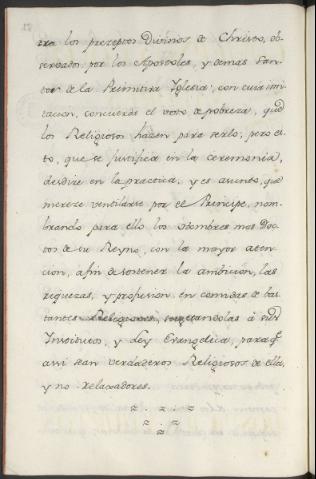 tra los preceptos Divinos de Christo, ob-
servados por los Apostoles, y demas San-
tos de la Primitiva Yglesia, con cuia imi-
tacion, concuerda el voto de pobreza, qe
los Religiosos hazen para serlo; pero es-
to, que se justifica en la ceremonia,
desdize en la practica, y es asunto, qe
mereze ventilarse por el Principe, nom-
brando para ello los Hombres mas Doc-
tos de su Reyno, con la mayor aten-
cion, a fin de contener la ambicion, las
riquezas, y profusion en comidas de bas-
tantes Religiosos, sugetandolas á sus
Ynstitutos, y Ley Evangelica, para qe
assi sean verdaderos Religiosos de ella,
y no relaxadores.